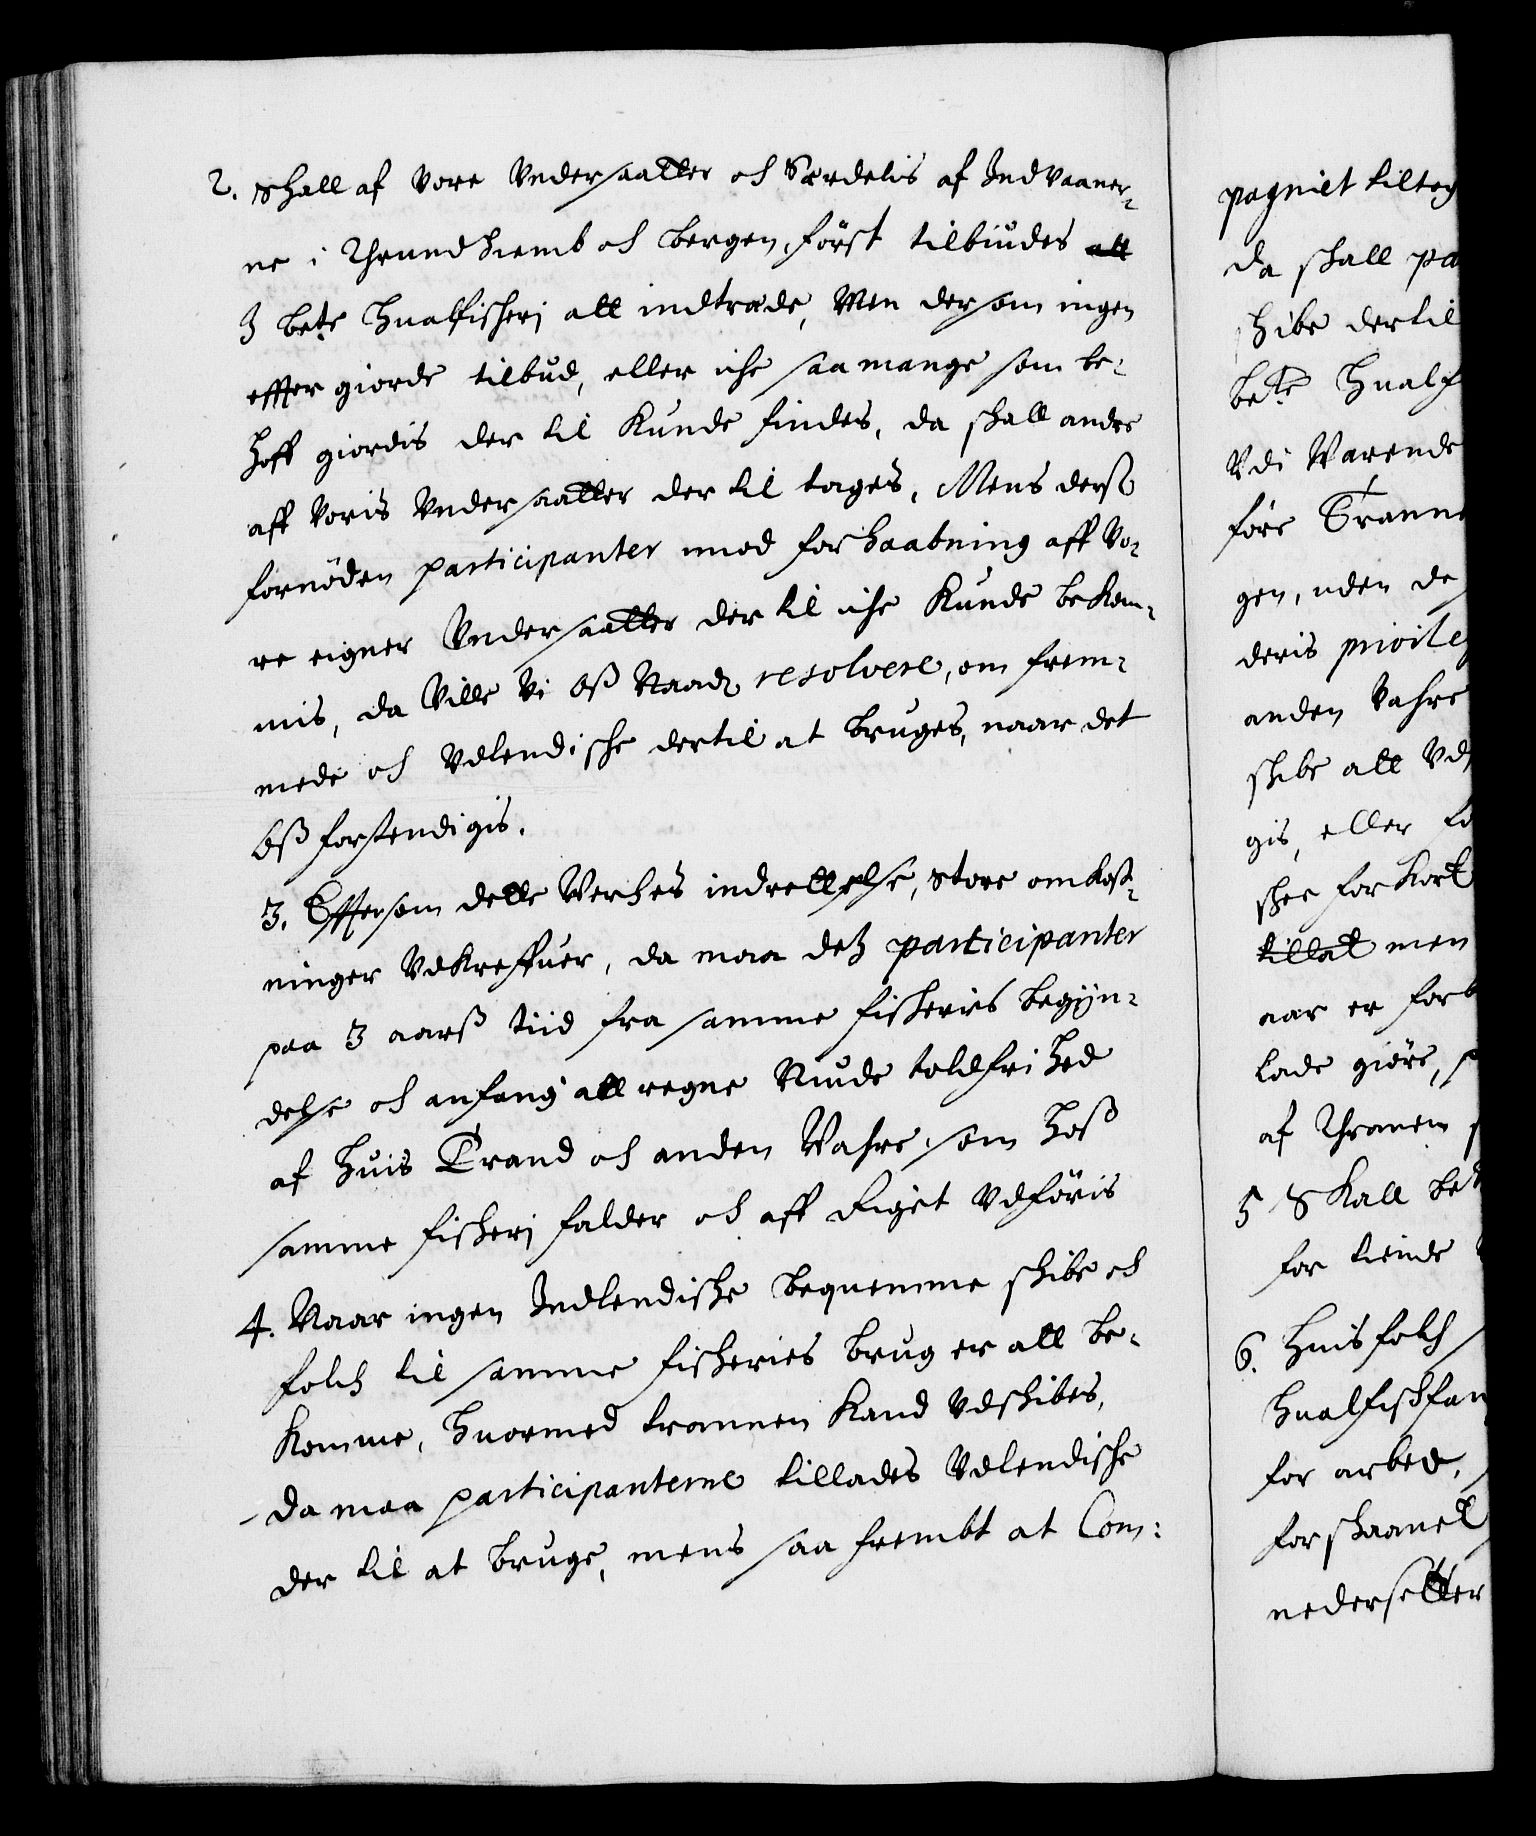 2. Skall af Vore Vndersaatter och Særdelis af Indvaaner-
ne i Thrundhiemb och Bergen, först tilbiudes att
J bete Hualfiskerj att indtræde, Men dersom ingen
effter giorde tilbud, eller iche saa mange som be-
hoff giordis der til Kunde findes, da skall andre
aff Voris Vndersaatter der til tages, Mens derß
fornöden participanter imod forhaabning aff Vo-
re eigner Vndersaatter der til iche Kunde bekom-
mis, da Ville Vi oß Naadl resolvere, om frem-
mede och Vdlendische dertil at bruges, naar det
oß forstendigis.
3. Effersom dette Verches indrettelse, store omkost-
ninger Vdkreffuer, da maa deß participanter
paa 3 aarß tiid fra samme fiskeries begÿn-
delse och anfang att regne Niude toldfrihed
af huis Trand och anden Vahre, som hoß
samme fiskerj falder och aff Riget Vdföris
4. Naar ingen Indlendiske bequemme skibe och
folch til samme fiskeries brug er att be-
komme, huormed trannen Kand Vdskibes,
da maa participanterne tillades Vdlendische
der til at bruge, mens saa frembt at Com:
pagniet tiltog
da skall pa
skibe dertil
bete Hualf
Vdi Varende
före Tranne
gen, uden de
deris privileg
anden Vahre
skibe att Vd
gis, eller
skee forkort
tillat men
aar er forb
lade giöre,
af Thranen
5 Skall bet
for tiende
6. Huis folch
Hualfischfan
for arbed,
forskaanet
nedersetter